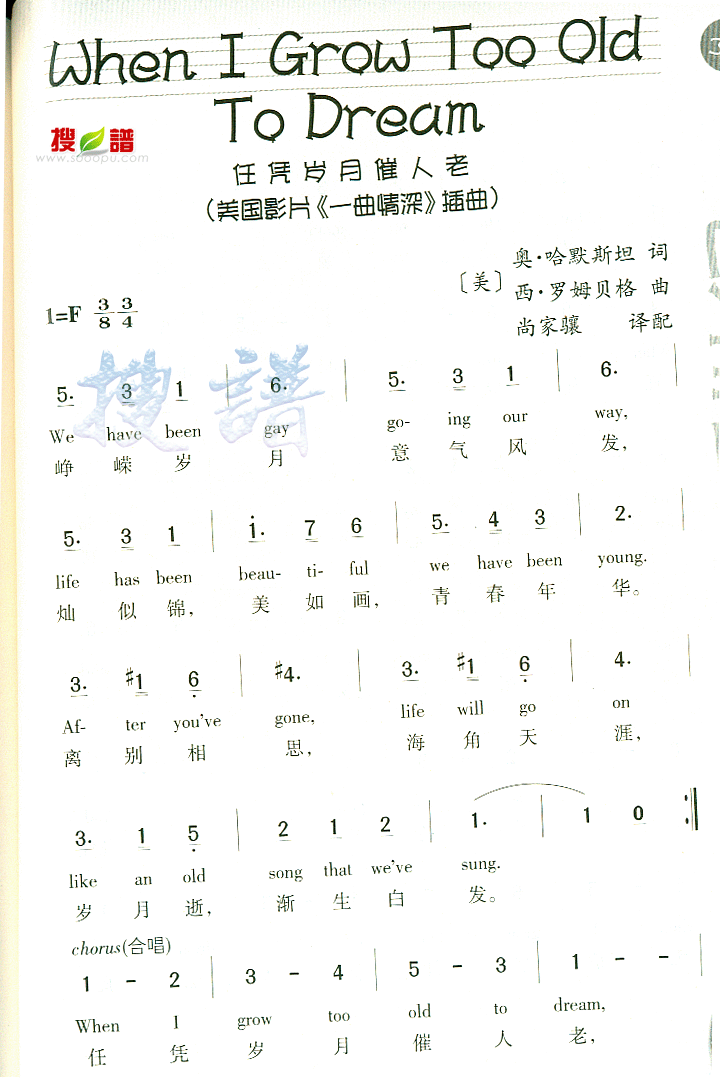 When I Grow Too Old
To Dream
搜谱
www.sooopu.com
任凭岁月催人老
(美国影片《一曲情深》插曲)
〔美〕
奥·哈默斯坦 词
西·罗姆贝格 曲
尚家骧 译配
1=F 3/8 3/4
搜谱
5. 3 1 | 6. | 5. 3 1 | 6. |
We have been gay go- ing our way,
峥嵘岁月 意气风发,
5. 3 1 | i. 7 6 | 5. 4 3 | 2. |
life has been beau- ti- ful we have been young.
灿似锦, 美如画, 青春年华。
3. #1 6 | #4. | 3. #1 6 | 4. |
Af- ter you've gone, life will go on
离别相思, 海角天涯,
3. 1 5 | 2 1 2 | 1. | 1 0 :‖
like an old song that we've sung.
岁月逝, 渐生白发。
chorus(合唱)
1 - 2 | 3 - 4 | 5 - 3 | 1 - - |
When I grow too old to dream,
任凭岁月催人老,